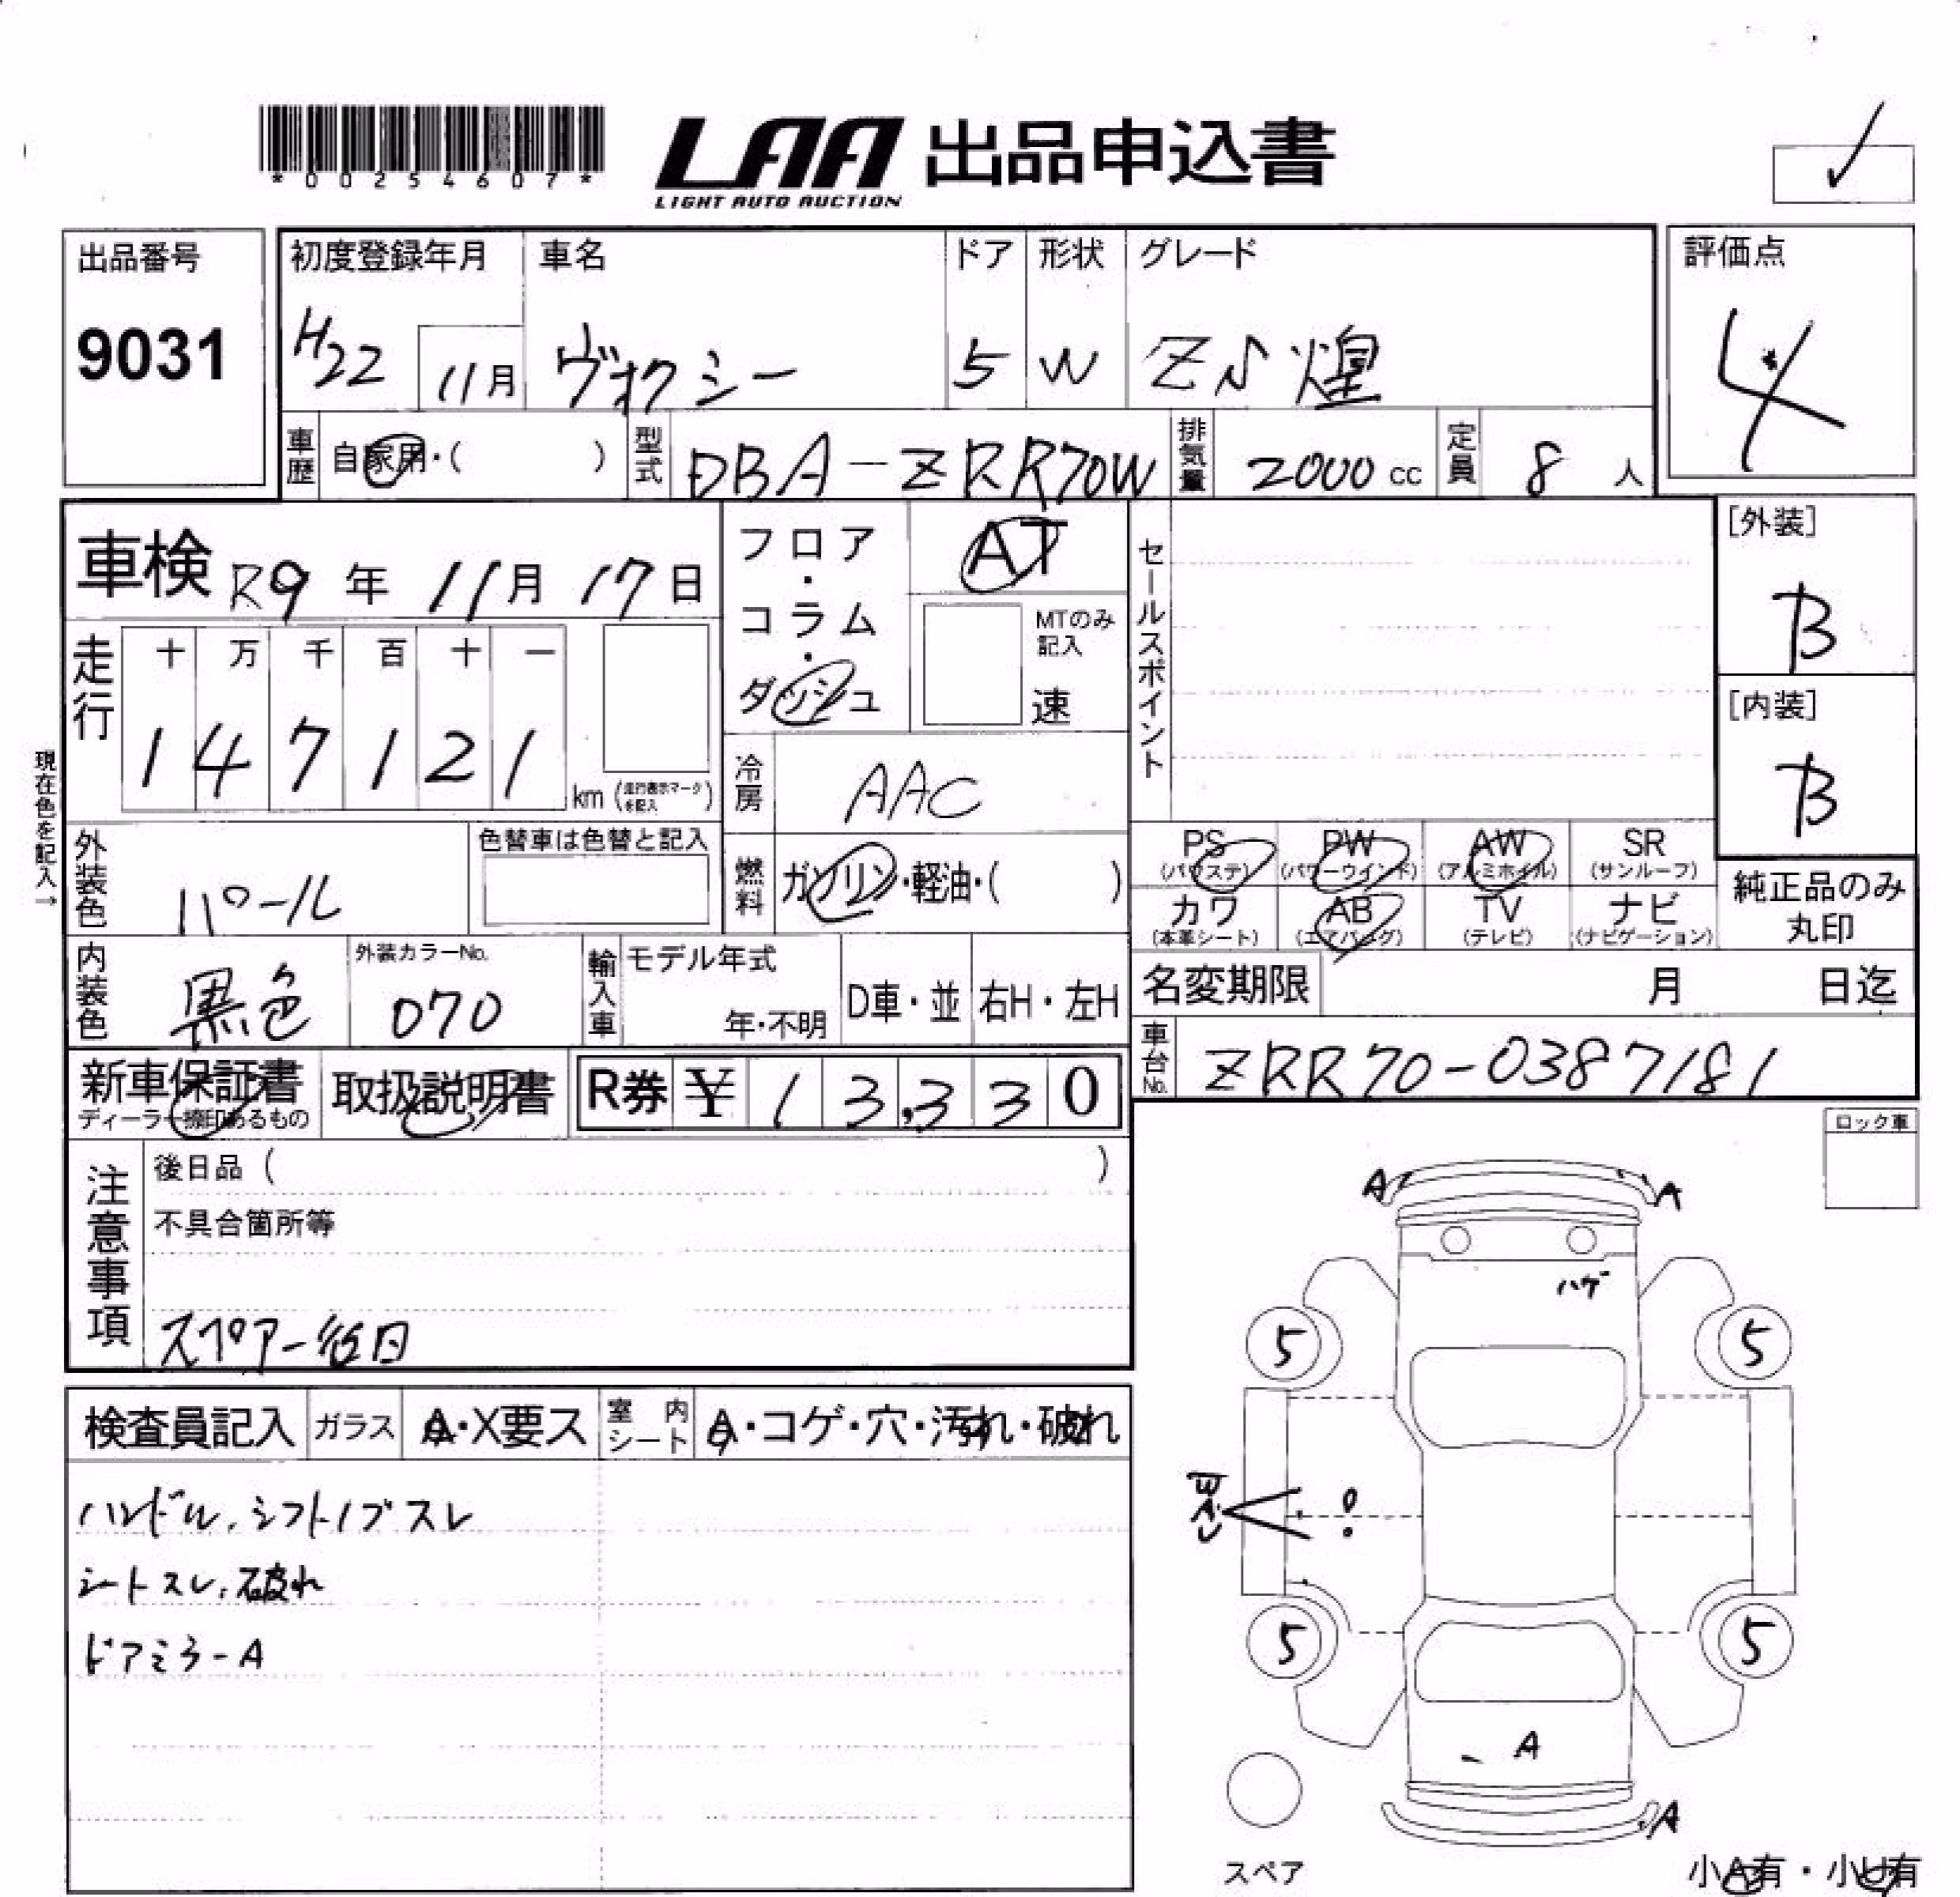 *00254607*
LAA 出品申込書
LIGHT AUTO AUCTION
出品番号
9031
初度登録年月
H22 11月
車名
ヴォクシー
ドア
5
形状
W
グレード
ZS 煌
評価点
4
車歴 自家用・( )
型式 DBA-ZRR70W
排気量 2000 cc
定員 8 人
車検 R9 年 11月 17日
走行
十 万 千 百 十 一
1 4 7 1 2 1
km (走行表示マークを記入)
現在色を記入→
外装色 パール
色替車は色替と記入
内装色 黒色
外装カラーNo.
070
フロア・コラム・ダッシュ
AT
MTのみ記入
速
冷房 AAC
燃料 ガソリン・軽油・( )
輸入車
モデル年式
年・不明
D車・並
右H・左H
セールスポイント
[外装]
B
[内装]
B
PS (パワステ)
PW (パワーウインド)
AW (アルミホイル)
SR (サンルーフ)
カワ (本革シート)
AB (エアバッグ)
TV (テレビ)
ナビ (ナビゲーション)
純正品のみ丸印
名変期限 月 日迄
車台No. ZRR70-0387181
新車保証書
ディーラー捺印あるもの
取扱説明書
R券 ¥ 13,330
注意事項
後日品 ( )
不具合箇所等
スペアー後日
ロック車
検査員記入
ガラス A・X要ス
室内シート A・コゲ・穴・汚れ・破れ
ハンドル、シフトノブスレ
シートスレ、破れ
ドアミラーA
A A
ハゲ
5 5
5 5
A
A
スペア
小A有・小U有